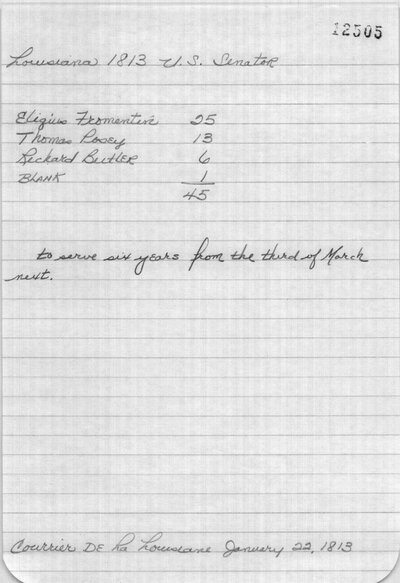 12505
Louisiana 1813 U.S. Senator
Eligius Fromentin 25
Thomas Posey 13
Richard Butler 6
BLANK 1
45
to serve six years from the third of March
next.
Courrier DE La Louisiane January 22, 1813